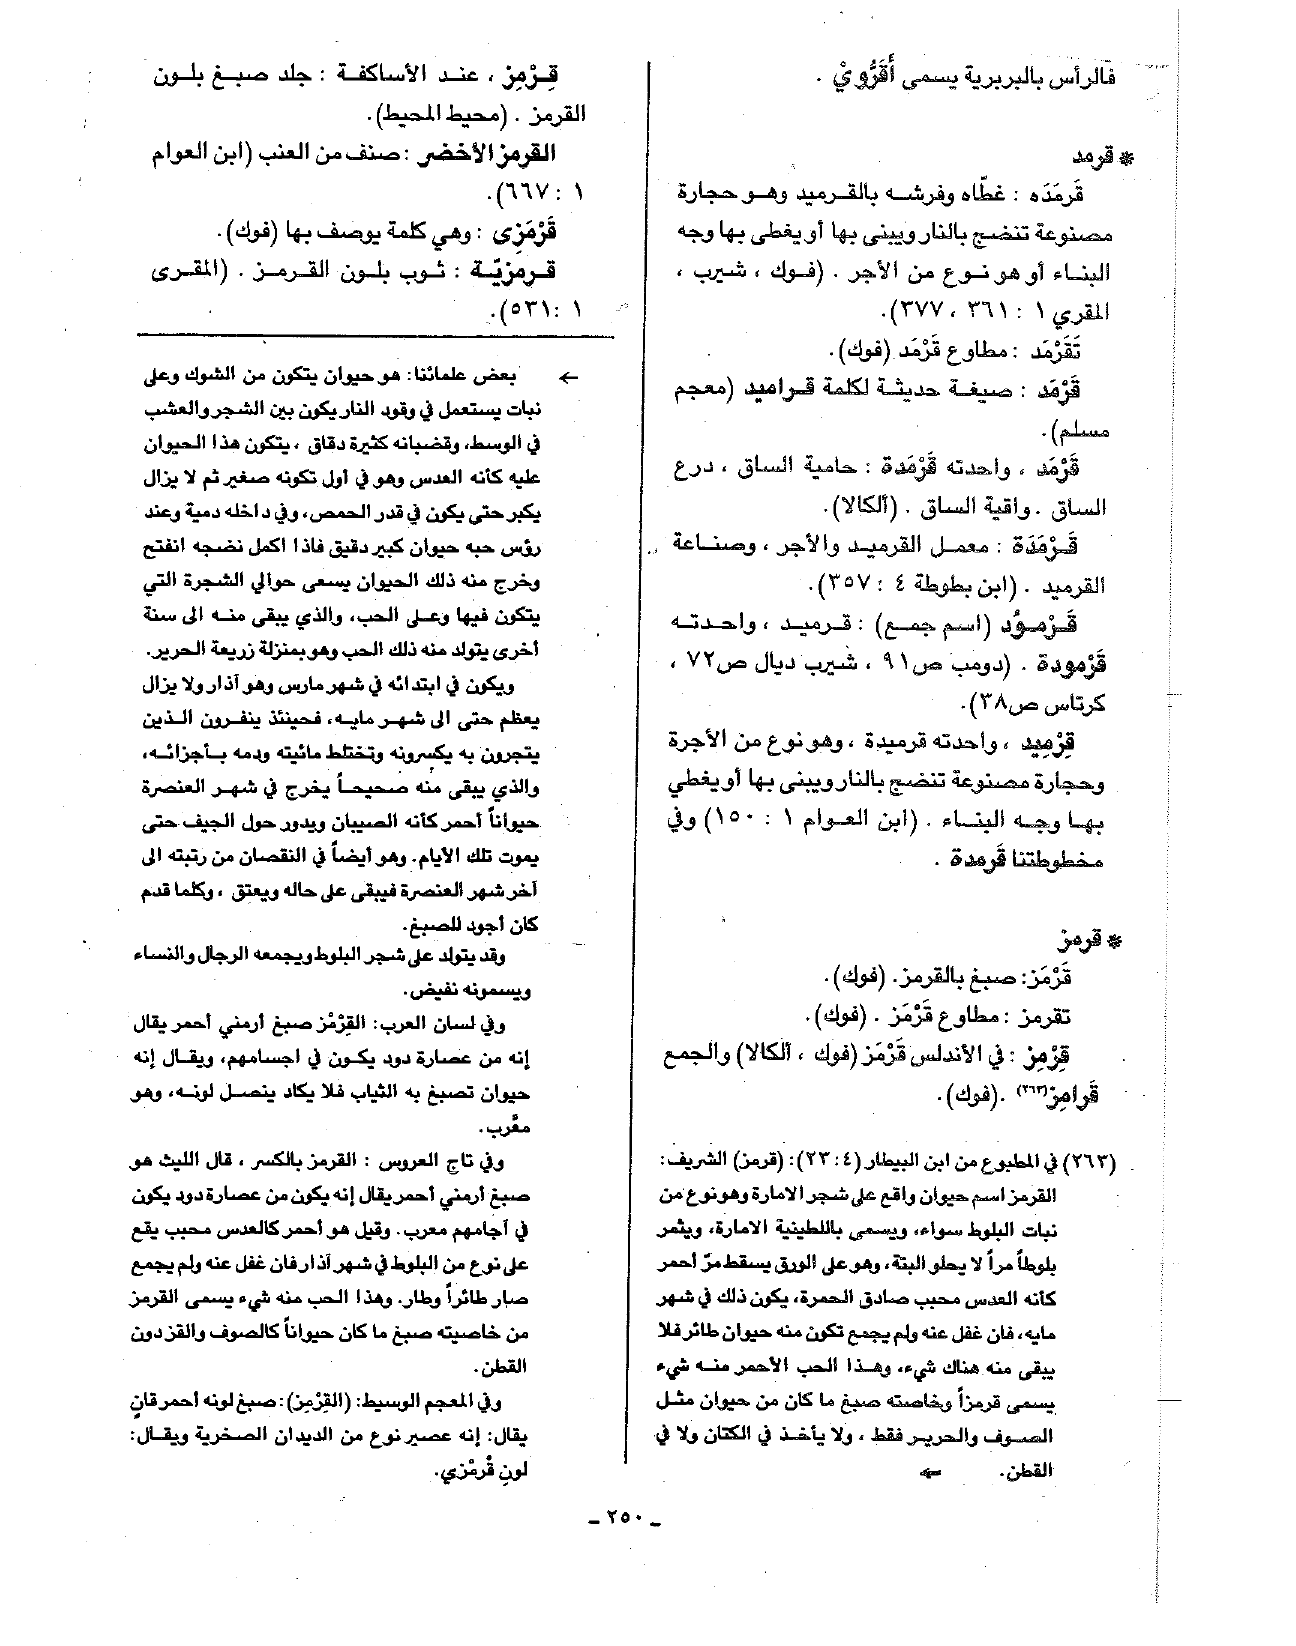 فالرأس بالبربرية يسمى أَقَرُّويْ .
* قرمد
قَرمَدَه : غطّاه وفرشه بالقرميد وهو حجارة
مصنوعة تنضج بالنار ويبنى بها أو يغطى بها وجه
البناء أو هو نوع من الأجر . (فوك ، شيرب ،
المقري ١ : ٣٦١ ، ٣٧٧).
تَقَرْمَد : مطاوع قَرْمَد (فوك).
قَرْمَد : صيغة حديثة لكلمة قراميد (معجم
مسلم).
قَرْمَد ، واحدته قَرْمَدة : حامية الساق ، درع
الساق . واقية الساق . (ألكالا).
قَرْمَدَة : معمل القرميد والأجر ، وصناعة
القرميد . (ابن بطوطة ٤ : ٣٥٧).
قَرْموُد (اسم جمع) : قرميد ، واحدته
قَرْمودة . (دومب ص٩١ ، شيرب ديال ص٧٢ ،
كرتاس ص٣٨).
قِرْمِيد ، واحدته قرميدة ، وهو نوع من الأجرة
وحجارة مصنوعة تنضج بالنار ويبنى بها أو يغطي
بها وجه البناء . (ابن العوام ١ : ١٥٠) وفي
مخطوطتنا قَرمدة .
* قرمز
قَرْمَز: صبغ بالقرمز. (فوك).
تقرمز : مطاوع قَرْمَز . (فوك).
قِرْمِز : في الأندلس قَرْمَز (فوك ، ألكالا) والجمع
قَرامِز(٢٦٣) .(فوك).
(٢٦٣) في المطبوع من ابن البيطار (٤ : ٢٣): (قرمز) الشريف:
القرمز اسم حيوان واقع على شجر الامارة وهو نوع من
نبات البلوط سواء، ويسمى باللطينية الامارة، ويثمر
بلوطاً مراً لا يحلو البتة، وهو على الورق يسقط مرّ أحمر
كأنه العدس محبب صادق الحمرة، يكون ذلك في شهر
مايه، فان غفل عنه ولم يجمع تكون منه حيوان طائر فلا
يبقى منه هناك شيء، وهذا الحب الأحمر منه شيء
يسمى قرمزاً وخاصته صبغ ما كان من حيوان مثل
الصوف والحرير فقط ، ولا يأخذ في الكتان ولا في
القطن. ←
قِرْمِز ، عند الأساكفة : جلد صبغ بلون
القرمز . (محيط المحيط).
القرمز الأخضر : صنف من العنب (ابن العوام
١ : ٦٦٧).
قَرْمَزِى : وهي كلمة يوصف بها (فوك).
قرمزيّة : ثوب بلون القرمز . (المقرى
١ : ٥٣١).
← بعض علمائنا: هو حيوان يتكون من الشوك وعلى
نبات يستعمل في وقود النار يكون بين الشجر والعشب
في الوسط، وقضبانه كثيرة دقاق ، يتكون هذا الحيوان
عليه كأنه العدس وهو في أول تكونه صغير ثم لا يزال
يكبر حتى يكون في قدر الحمص، وفي داخله دمية وعند
رؤس حبه حيوان كبير دقيق فاذا اكمل نضجه انفتح
وخرج منه ذلك الحيوان يسعى حوالي الشجرة التي
يتكون فيها وعلى الحب، والذي يبقى منه الى سنة
أخرى يتولد منه ذلك الحب وهو بمنزلة زريعة الحرير.
ويكون في ابتدائه في شهر مارس وهو آذار ولا يزال
يعظم حتى الى شهر مايه، فحينئذ ينفرون الذين
يتجرون به يكسرونه وتختلط مائيته ودمه بأجزائه،
والذي يبقى منه صحيحاً يخرج في شهر العنصرة
حيواناً أحمر كأنه الصيبان ويدور حول الجيف حتى
يموت تلك الأيام. وهو أيضاً في النقصان من رتبته الى
آخر شهر العنصرة فيبقى على حاله ويعتق ، وكلما قدم
كان أجود للصبغ.
وقد يتولد على شجر البلوط ويجمعه الرجال والنساء
ويسمونه نفيض.
وفي لسان العرب: القِرْمْز صبغ أرمني أحمر يقال
إنه من عصارة دود يكون في اجسامهم، ويقال إنه
حيوان تصبغ به الثياب فلا يكاد ينصل لونه، وهو
معْرب.
وفي تاج العروس : القرمز بالكسر ، قال الليث هو
صبغ أرمني أحمر يقال إنه يكون من عصارة دود يكون
في آجامهم معرب. وقيل هو أحمر كالعدس محبب يقع
على نوع من البلوط في شهر آذار فان غفل عنه ولم يجمع
صار طائراً وطار. وهذا الحب منه شيء يسمى القرمز
من خاصيته صبغ ما كان حيواناً كالصوف والقز دون
القطن.
وفي المعجم الوسيط: (القِرْمِز): صبغ لونه أحمر قانٍ
يقال: إنه عصير نوع من الديدان الصخرية ويقال:
لون قُرمْزي.
ـ ٢٥٠ ـ